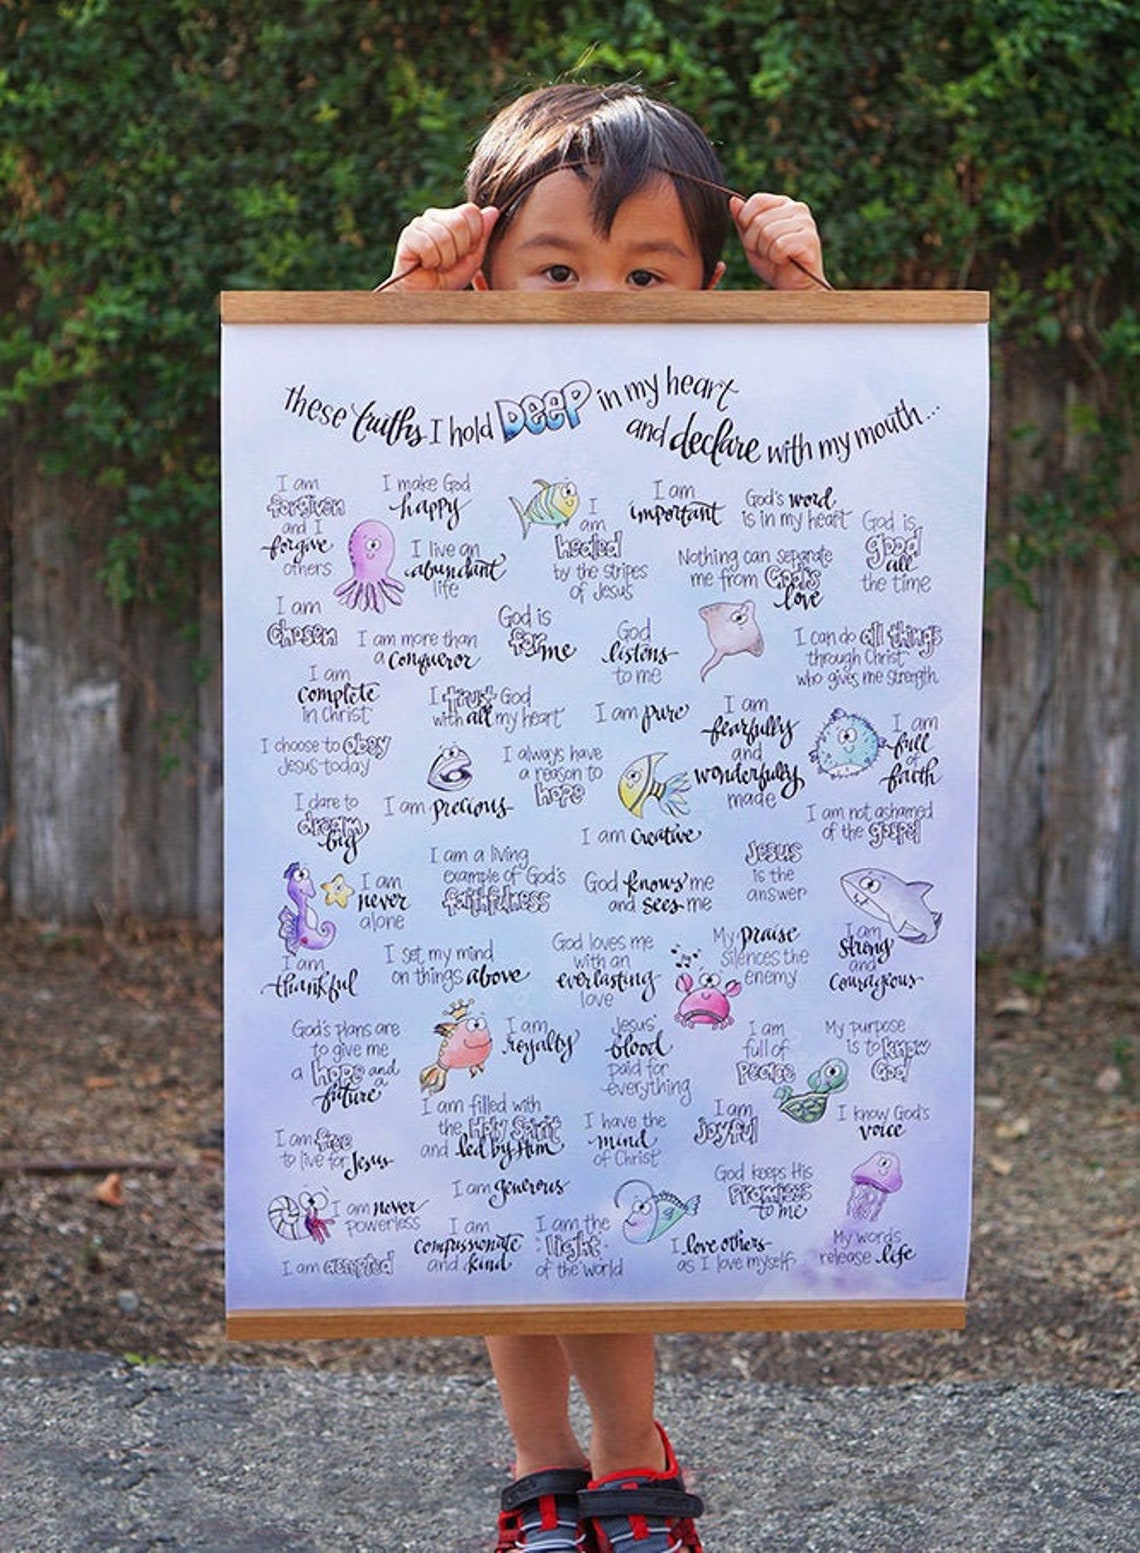 these truths I hold DEEP in my heart
and declare with my mouth...
I am
forgiven
and I
forgive
others
I make God
happy
I live an
abundant
life
I
am
healed
by the stripes
of Jesus
I am
important
God's word
is in my heart
God is
good
all
the time
Nothing can separate
me from God's
love
I am
chosen
I am more than
a conqueror
God is
for me
God
listens
to me
I can do all things
through Christ
who gives me strength
I am
complete
in Christ
I trust God
with all my heart
I am pure
I am
fearfully
and
wonderfully
made
I am
full
of
faith
I choose to obey
Jesus today
I always have
a reason to
hope
I dare to
dream
big
I am precious
I am creative
I am not ashamed
of the gospel
I am
never
alone
I am a living
example of God's
faithfulness
God knows me
and sees me
Jesus
is the
answer
I am
strong
and
courageous
I am
thankful
I set my mind
on things above
God loves me
with an
everlasting
love
My praise
silences the
enemy
God's plans are
to give me
a hope and
a
future
I am
royalty
Jesus'
blood
paid for
everything
I am
full of
peace
My purpose
is to know
God
I am filled with
the Holy Spirit
and led by Him
I have the
mind
of Christ
I am
joyful
I know God's
voice
I am free
to live for Jesus
I am generous
God keeps His
promises
to me
I am never
powerless
I am
compassionate
and kind
I am the
light
of the world
I love others
as I love myself
My words
release life
I am accepted